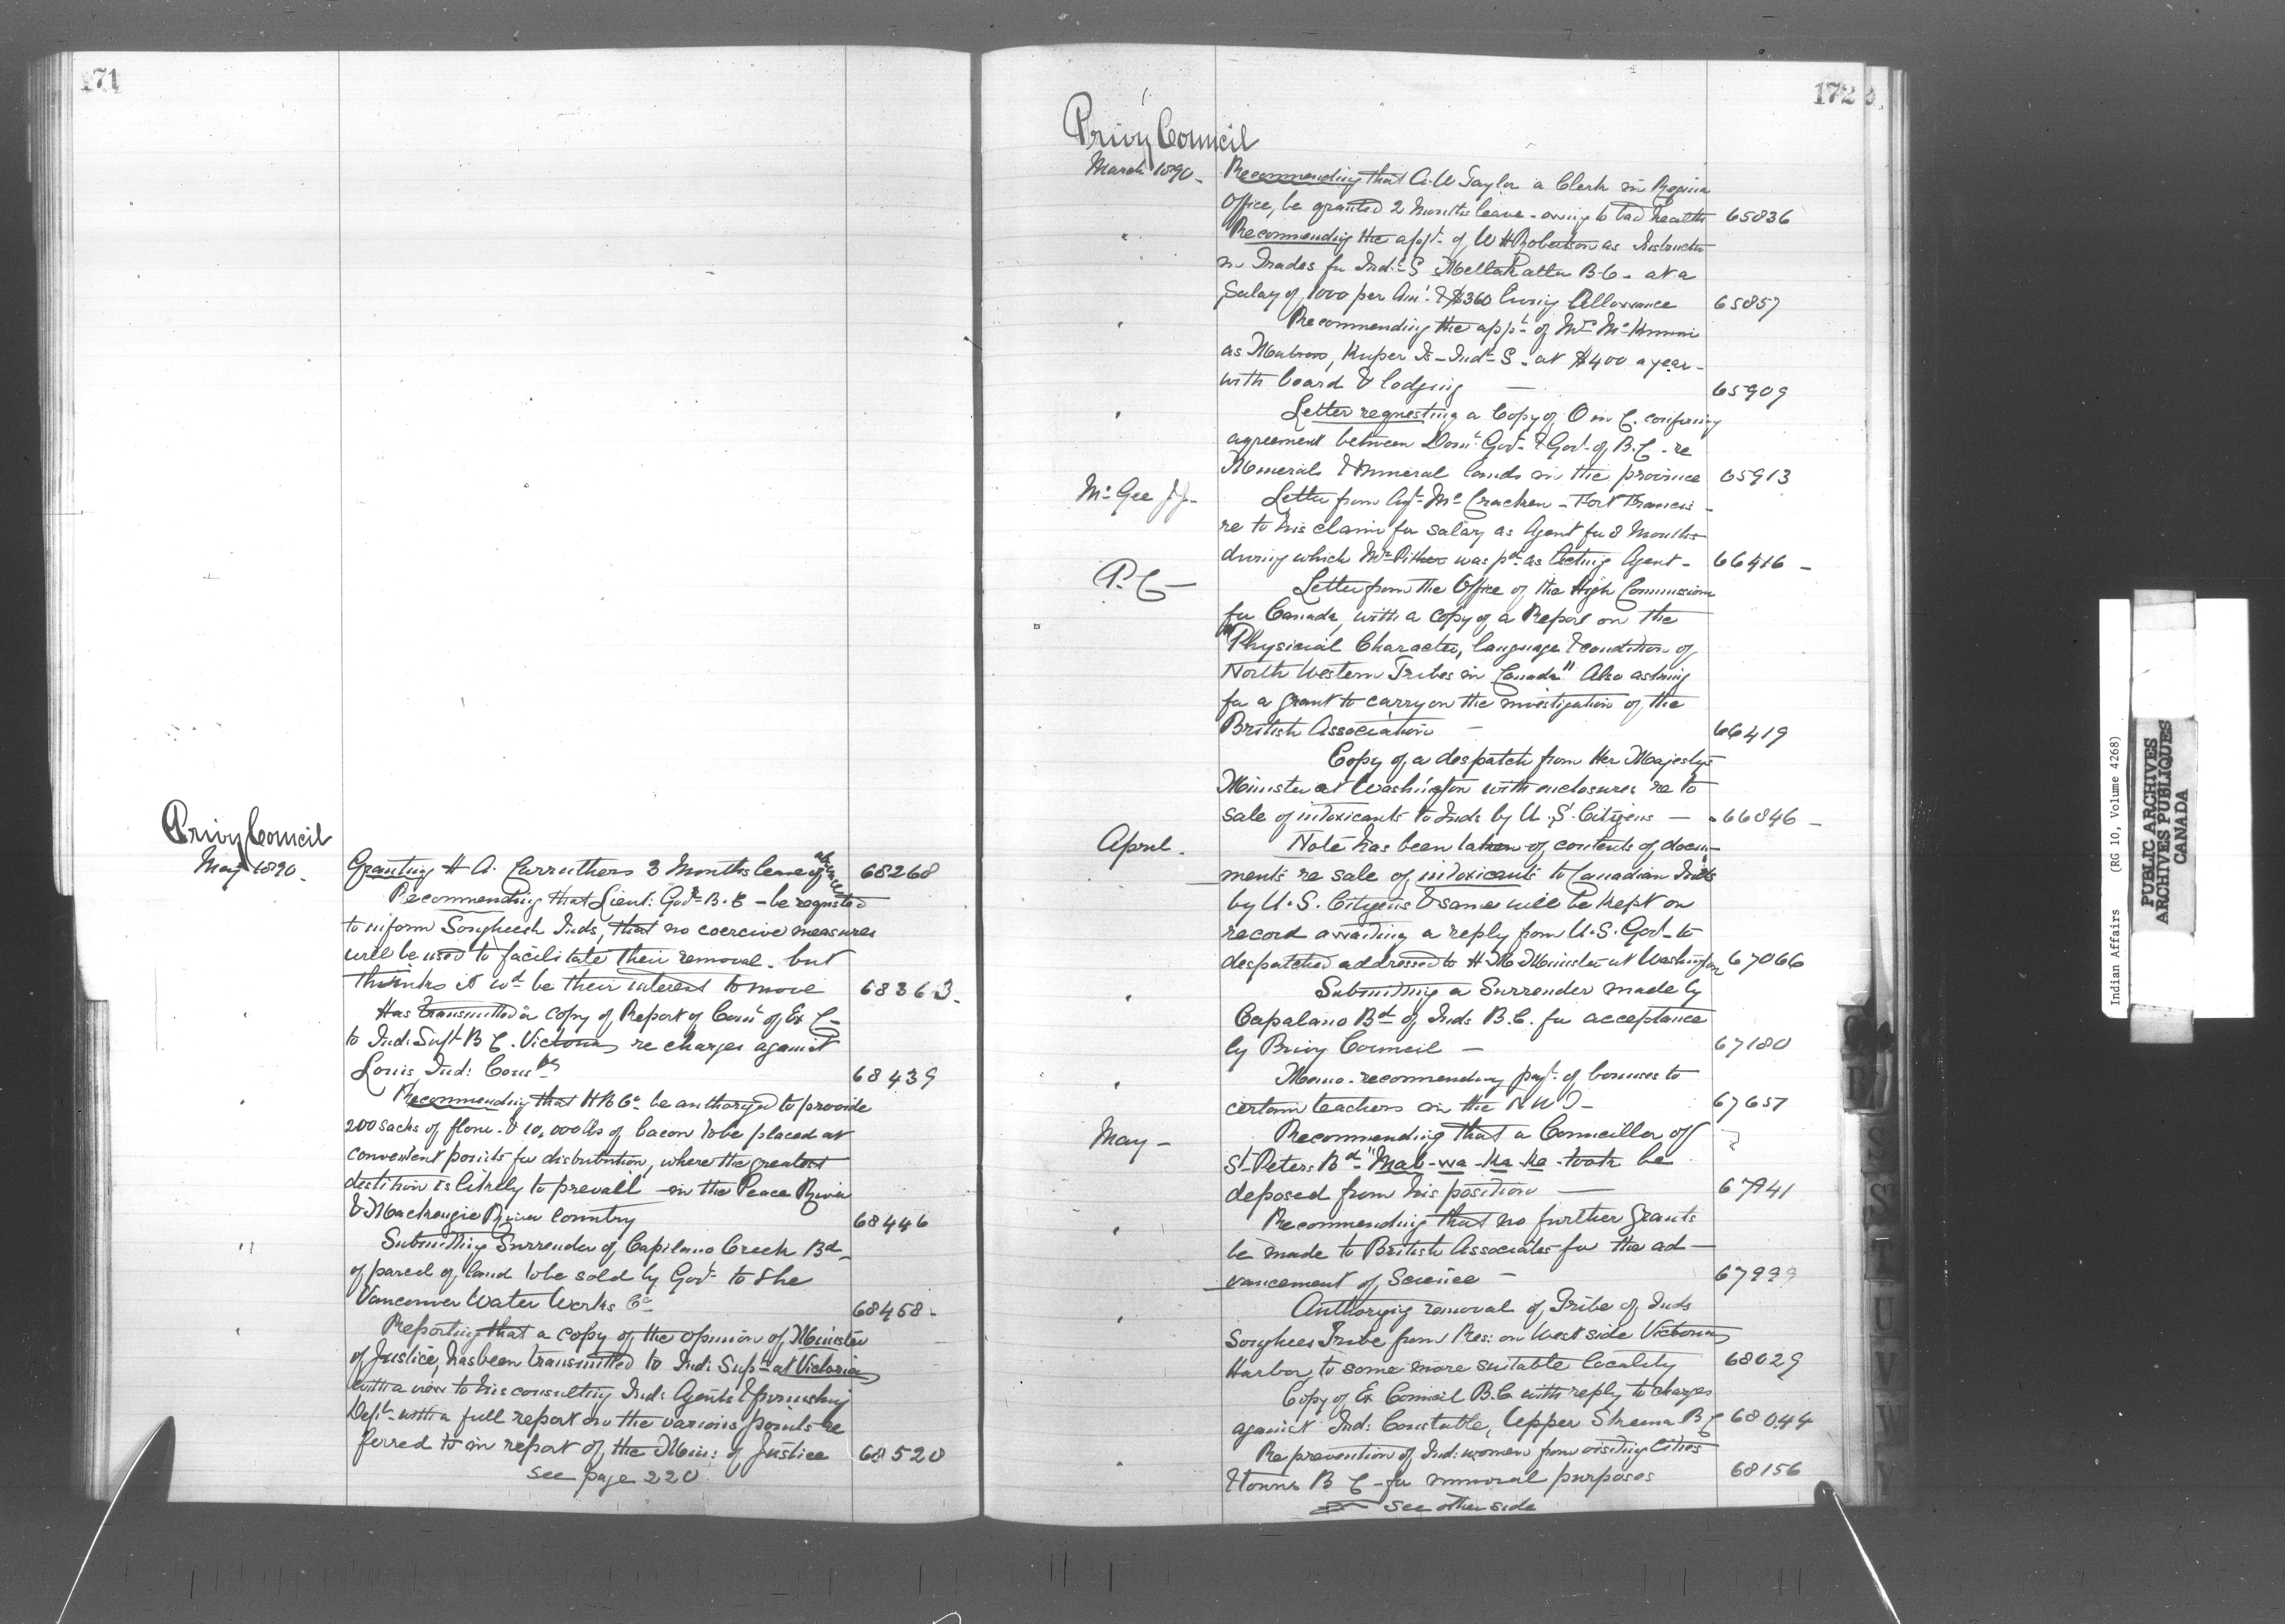 171
Privy Council
May 1890.
Granting H A. Carruthers 3 Months leave of absence 68268
Recommending that Lieut: Govr B.C - be requested
to inform Songheesh Inds, that no coercive measures
will be used to facilitate their removal - but
thinks it wd be their interest to move 68363.
Has transmitted a copy of Report of Comt of Ex C -
to Ind: Supt B C. Victoria re charges against
Louis, Ind: Consble 68439
Recommending that H B Co be authorized to provide
200 sacks of flour & 10,000 lbs of bacon to be placed at
convenient points for distribution, where the greatest
destition is likely to prevail - in the Peace River
& Mackenzie River Country 68446
" Submitting Surrender of Capilano Creek Bd
of parcel of land to be sold by Govt to the
Vancouver Water Works Co 68458 -
Reporting that a copy of the opinion of Minister
of Justice, has been transmitted to Ind: Supt at Victoria
with a view to his consulting Ind: Agents & furnishing
Dept with a full report on the various points re
ferred to in report of the Min: of Justice 68520
see page 220
172
Privy Council
March 1890 - Recommending that A. W Taylor a Clerk in Regina
Office, be granted 2 Months leave - owing to bad health 65836
" Recommending the appt of W H Robertson as Instructor
in Trades for Indl S Metlakatla B.C - at a
Salary of 1000 per An: & $360 living Allowance 65857
" Recommending the appt of Mrs
as Matron, Kuper Is - Indl S - at $400 a year -
with board & lodging 65909
" Letter requesting a Copy of O in C. confirming
agreement between Domn Govt & Govt of B.C - re
Minerals & mineral lands in the province 65913
McGee J J - Letter from Agt McCracken - Fort Francis -
re to his claim for salary as Agent for 8 Months
during which Mr Pither was pd as Acting Agent - 66416 -
P. C - Letter from the Office of the High Commissioner
for Canada, with a copy of a Report on the
"Physicial Character, language & condition of
North Western Tribes in Canada" Also asking
for a grant to carry on the investigation of the
British Association - 66419
Copy of a despatch from Her Majesty's
Minister at Washington with enclosures re to
sale of intoxicants to Inds by U.S. Citizens - 66846 -
April - Note has been taken of contents of docu-
ments re sale of intoxicants to Canadian Inds
by U.S. Citizens & same will be kept on
record awaiting a reply from U.S. Govt - to
despatched addressed to H M Minister at Washington 67066
" Submitting a Surrender made by
Capalano Bd of Inds B.C. for acceptance
by Privy Council - 67180
" Memo - recommending payt of bonuses to
certain teachers in the N W T - 67657
May - Recommending that a Councillor of
St Peters Bd "Mab-wa-ka-ke-toah be
deposed from his position - 67941
" Recommending that no further grants
be made to British Associates for the ad -
vancement of Science - 67999
" Authorizing removal of Tribe of Inds
Songhees Tribe from Res: on West side Victoria
Harbor, to some more suitable locality 68029
Copy of Ex Council B.C with reply to charges
against Ind: Constable, Upper Skeena B C 68044
" Re prevention of Ind: women from visiting Cities
& towns B C - for immoral purposes 68156
see other side
Indian Affairs (RG 10, Volume 4268)
PUBLIC ARCHIVES
ARCHIVES PUBLIQUES
CANADA
S
T
U
V
W
Y